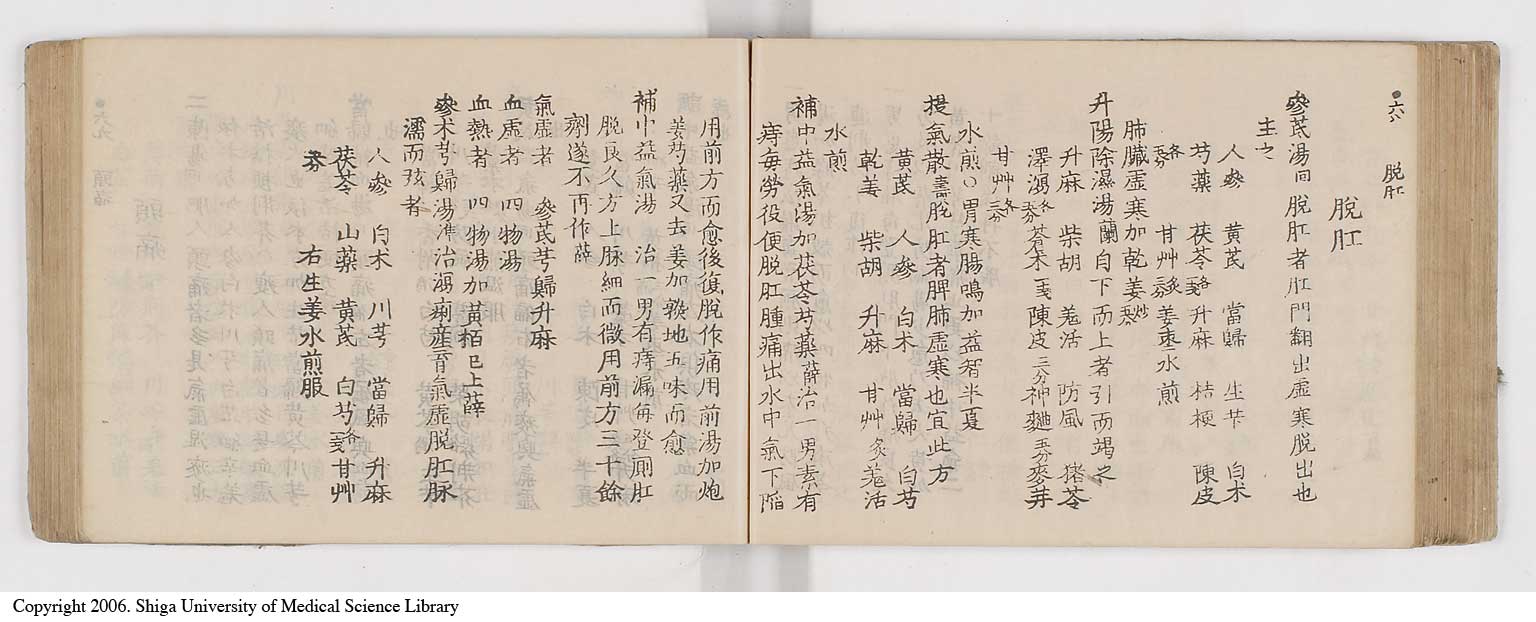 六 脱肛
脱肛
參芪湯回 脱肛者肛門翻出虚寒脱出也
主之
人參 黄芪 當歸 生芐 白术
芍藥 茯苓各一戔 升麻 桔梗 陳皮
各五分 甘艸三分 姜棗水煎
肺臓虚寒加乾姜炒五分
升陽除濕湯蘭 自下而上者引而竭之
升麻 柴胡 羗活 防風 猪苓
澤瀉各五分 蒼术一戔 陳皮三分 神麯五分 麥芽
甘艸各三分
水煎○胃寒腸鳴加益智半夏
提氣散壽 脱肛者脾肺虚寒也宜此方
黄芪 人參 白术 當歸 白芍
乾姜 柴胡 升麻 甘艸炙 羗活
水煎
補中益氣湯加茯苓芍藥 薛治一男素有
痔毎勞役便脱肛腫痛出水中氣下陷
用前方而愈後復脱作痛用前湯加炮
姜芍藥又去姜加熟地五味而愈
補中益氣湯 治一男有痔漏毎登厠肛
脱良久方上脉細而微用前方三十餘
劑遂不再作薛
氣虚者 參芪芎歸升麻
血虚者 四物湯
血熱者 四物湯加黄栢已上薛
參术芎歸湯準 治瀉痢産育氣虚脱肛脉
濡而弦者
人參 白术 川芎 當歸 升麻
茯苓 山藥 黄芪 白芍各一戔 甘艸
五分 右生姜水煎服